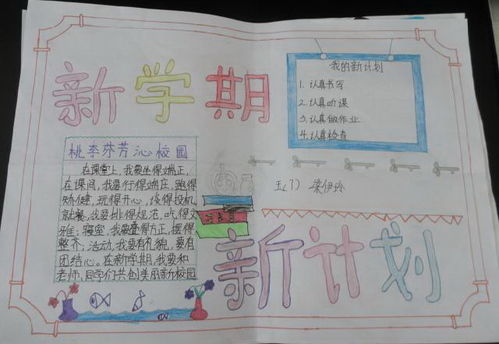 新学期
我的新计划
1. 认真书写
2. 认真听课
3. 认真做作业
4. 认真检查
桃李芬芳沁校园
在课堂上,我要坐得端正,
在课间,我要行得端庄,跑得
矫健,玩得开心,谈得投机
就餐,我要排得规范,吃得文
雅;寝室,我要叠得方正,摆得
整齐;活动,我要有礼貌,要有
团结心。在新学期,我要和
老师,同学们共创美丽新校园
五(7) 梁伊玲
新计划